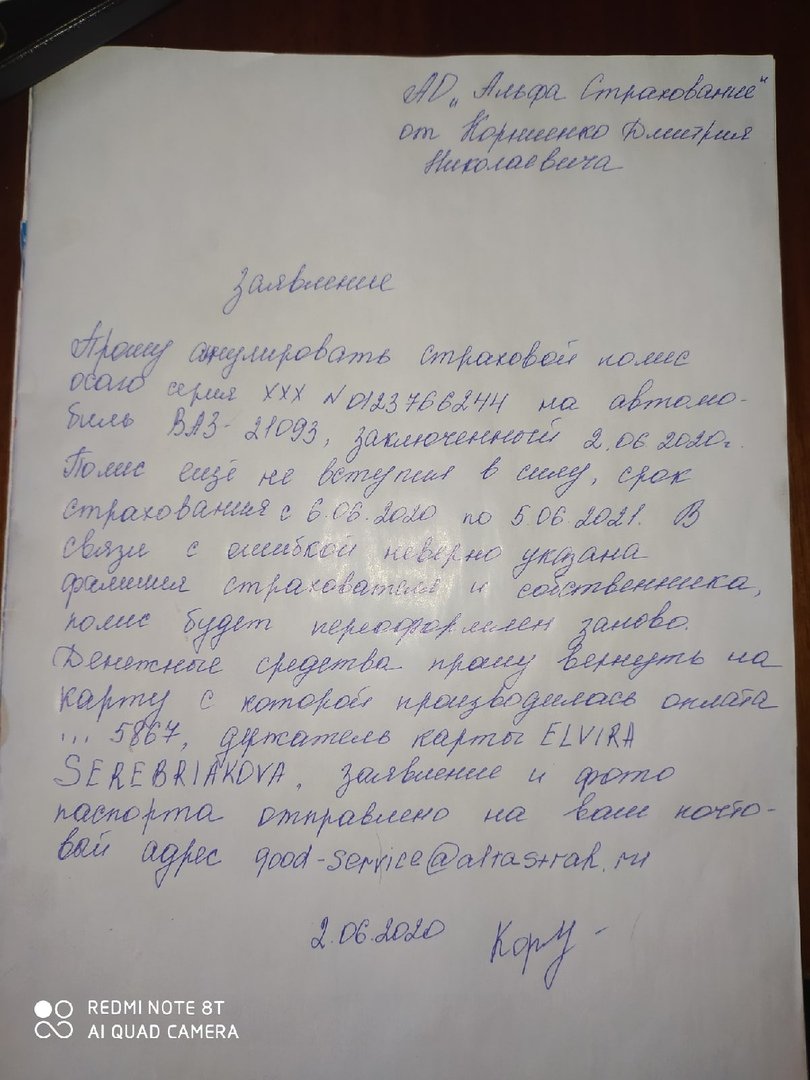 АО „Альфа Страхование"
от Корниенко Дмитрия
Николаевича
Заявление
Прошу анулировать страховой полис
осаго серия ХХХ N 0123766244 на автомо-
биль ВАЗ-21093, заключенный 2.06.2020г.
Полис ещё не вступил в силу, срок
страхования с 6.06.2020 по 5.06.2021. В
связи с ошибкой неверно указана
фамилия страхователя и собственника,
полис будет переоформлен заново.
Денежные средства прошу вернуть на
карту с которой производилась оплата
... 5867, держатель карты ELVIRA
SEREBRIAKOVA, заявление и фото
паспорта отправлено на ваш почто-
вый адрес good-service@alfastrah.ru
2.06.2020
REDMI NOTE 8T
AI QUAD CAMERA